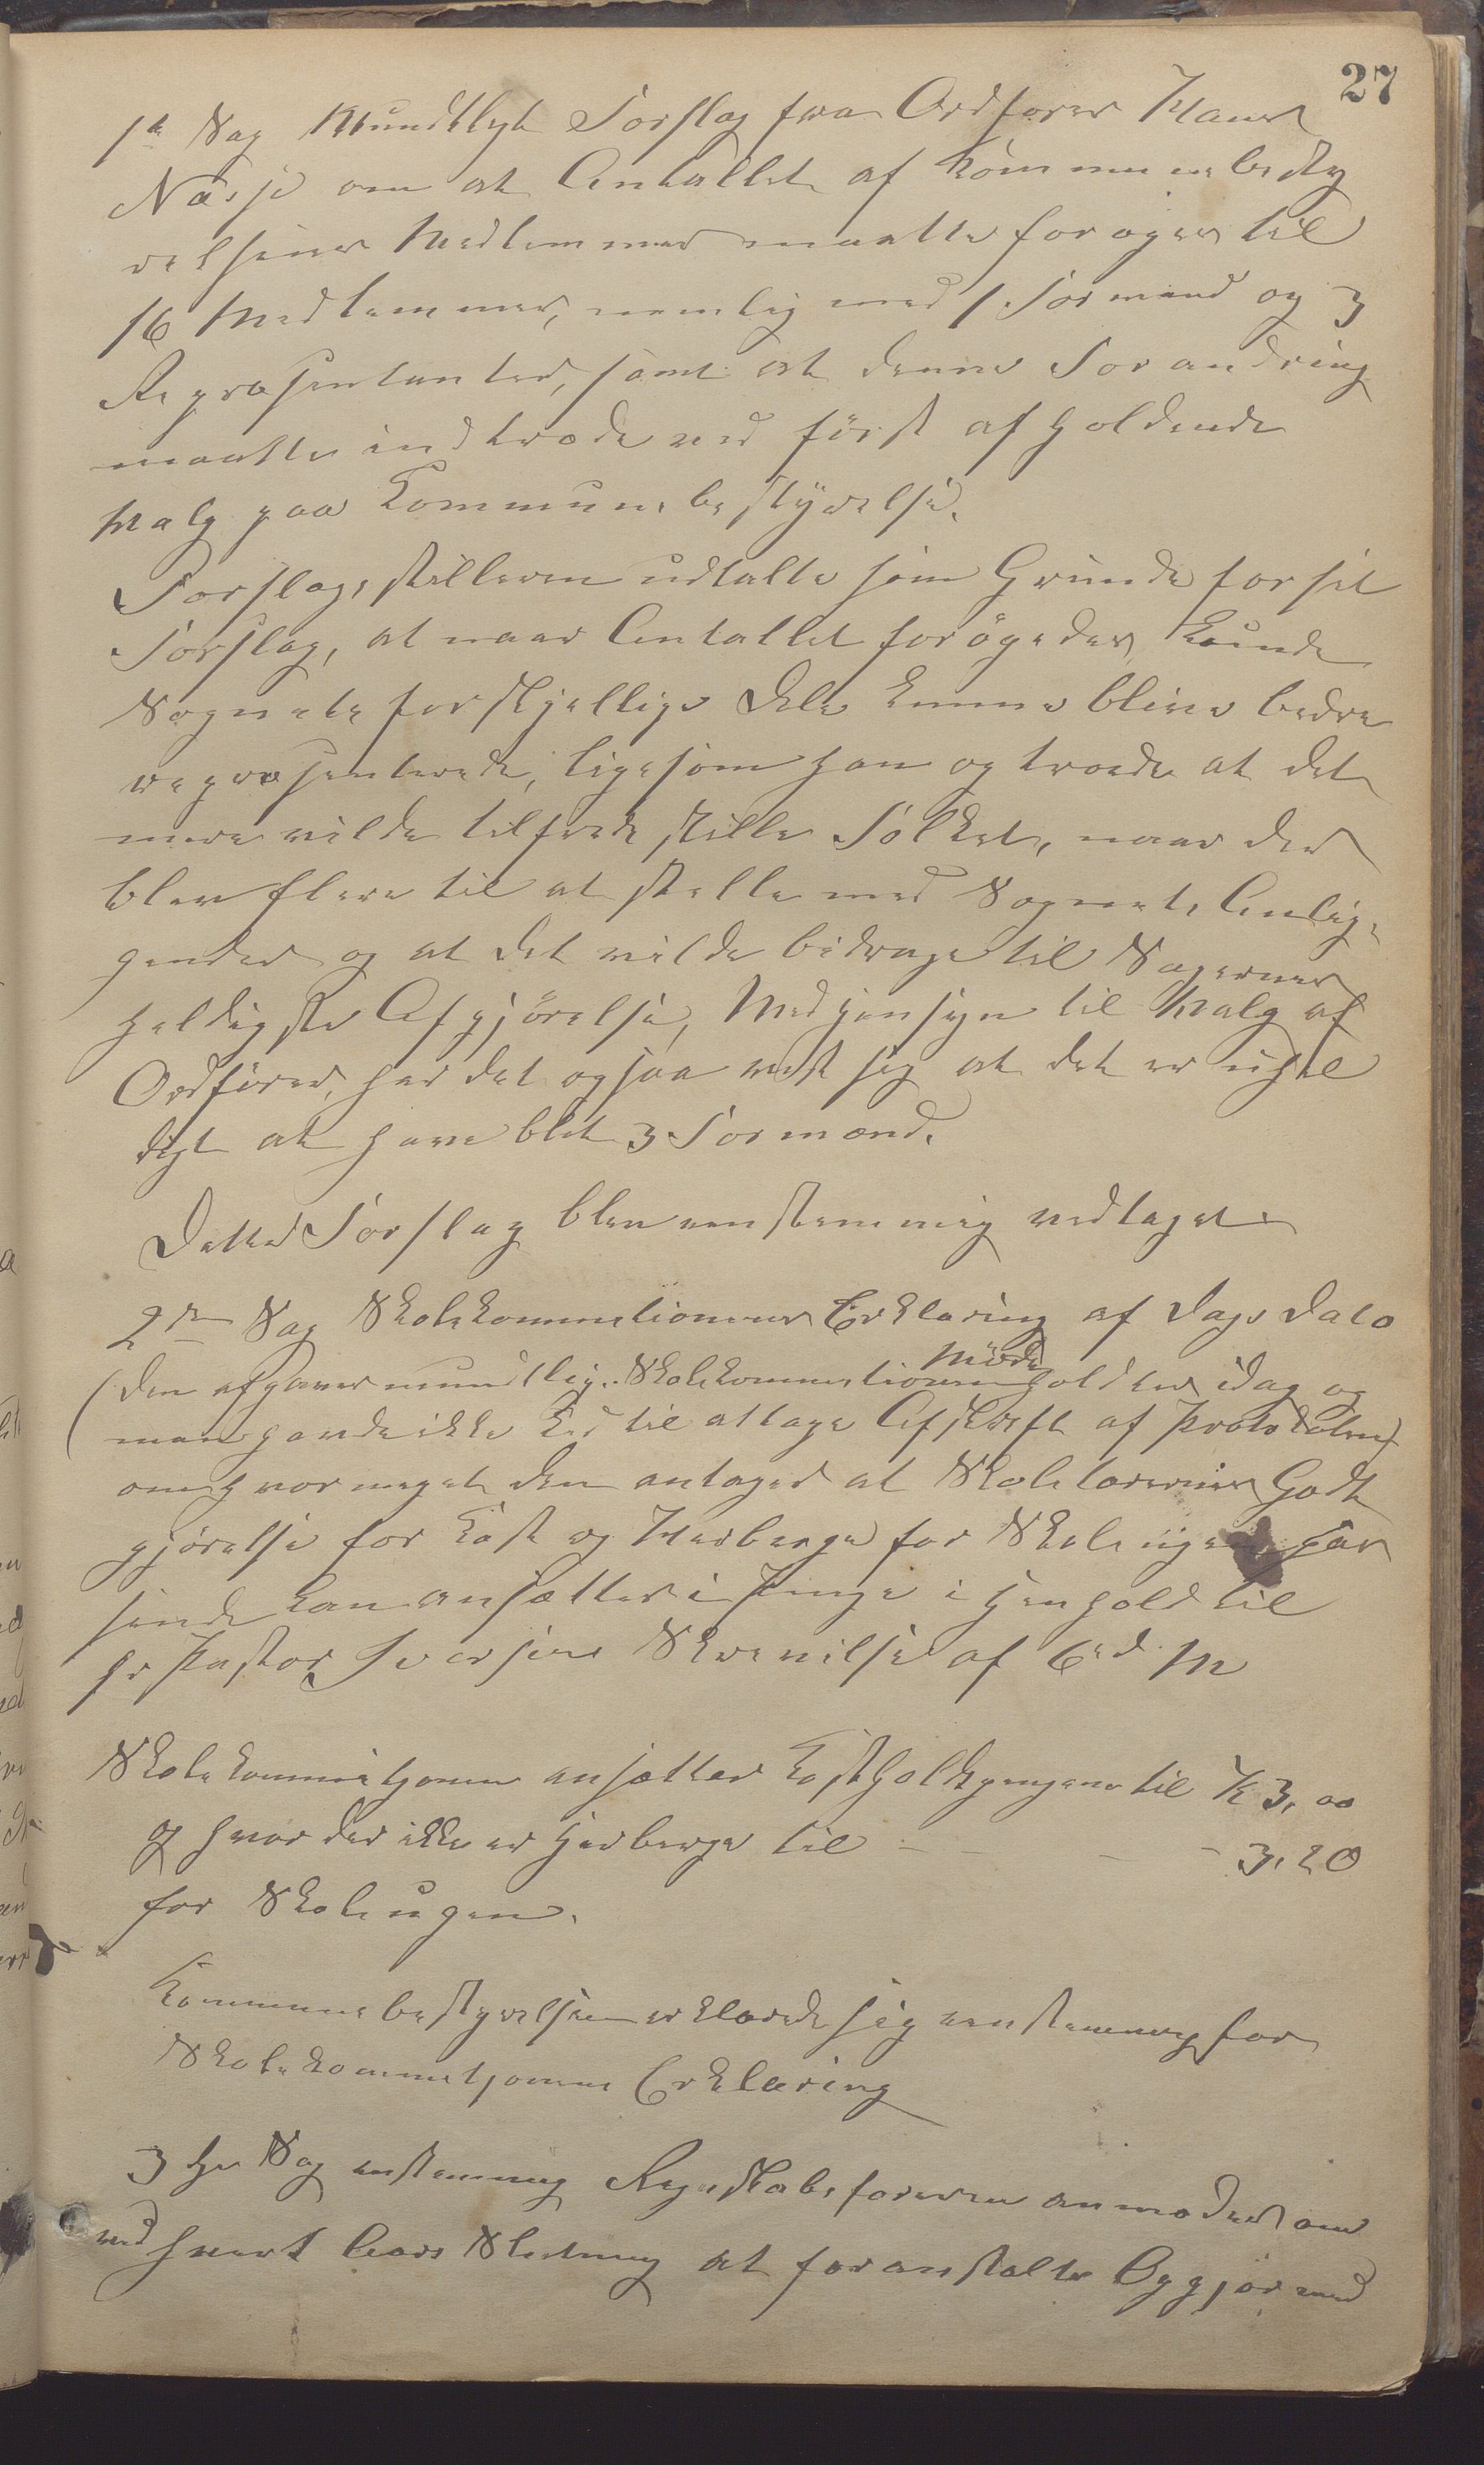 27
1ste Sag Mundtligt Forslag fra Ordfører Hans
Næsje om at Antallet af Kommunebesty
relsens Medlemmer maatte forøges til
16 Medlemmer, nemlig med 1 Formand og 3
Repræsentanter, samt at denne Forandring
maatte indtræde ved först afholdende
Valg paa Kommunebestyrelse.
Forslagsstilleren udtalte som Grunde for sit
Forslag, at naar Antallet forögedes kunde
Sognets forskjellige Dele kunne blive bedre
repræsenterede, ligesom han og troede at det
mere vilde tilfredsstille Folket, naar der
blev flere til at stelle med Sognets Anlig-
gender og at det vilde bidrage til Sagernes
heldigste Afgjörelse, Med Hensyn til Valg af
Ordförer, har det ogsaa vist sig at det er uhel
digt at have blot 3 Formænd.
Dette Forslag blev eenstemmig vedtaget.
2den Sag Skolekommissionens Erklæring af Dags Dato
(den afgaves mundtlig. Skolekommissionen Möde holdtes idag og
man havde ikke Tid til at tage Afskrift af Protokolen)
om hvor meget den antager at Skolelærernes Godt
gjörelse for Kost og Herberge for Skoleugen
kan ansættes i Penge i Henhold til
Hr Pastor Iversens Skrivelse af 6te d. M
Skolekommissjonen ansætter Kostholdspengene til K 3,00
og hvor der ikke er Herberge til - - - - 3,20
for Skoleugen.
Kommunebestyrelsen erklærede sig eenstemmig for
Skolekommissjonens Erklæring
3die Sag enstemmig Regnskabsføreren anmodes om
ved hvert Aars Slutning at foranstalte Opgjör med